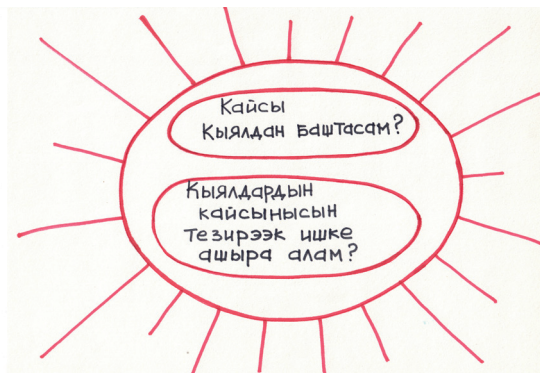 Кайсы
Кыялдан баштасам?
Кыялдардын
кайсынысын
тезирээк ишке
ашыра алам?